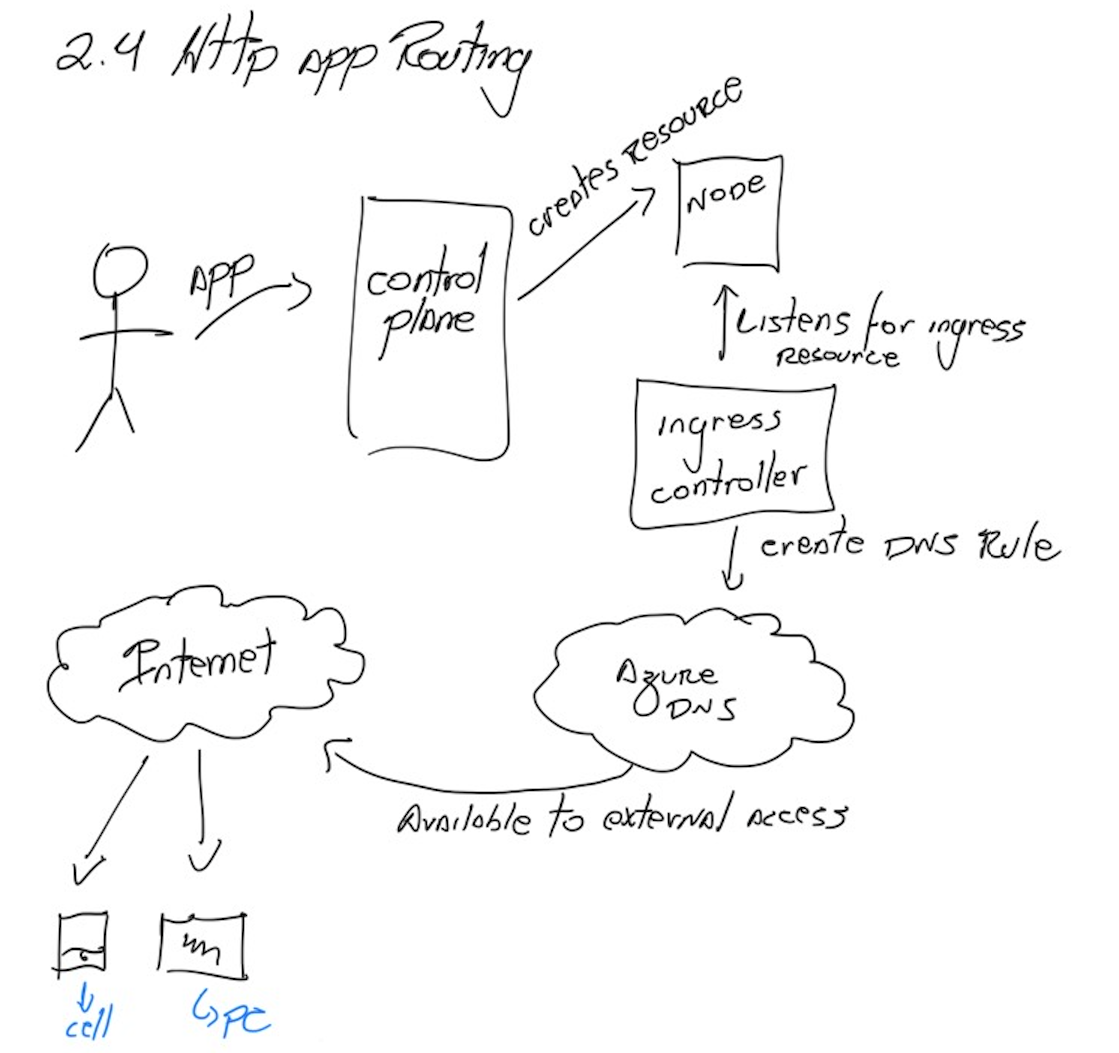 2.4 Http App Routing
creates resource
Node
App
control
plane
Listens for ingress
resource
ingress
controller
create DNS Rule
Internet
Azure
DNS
Available to external access
cell
PC